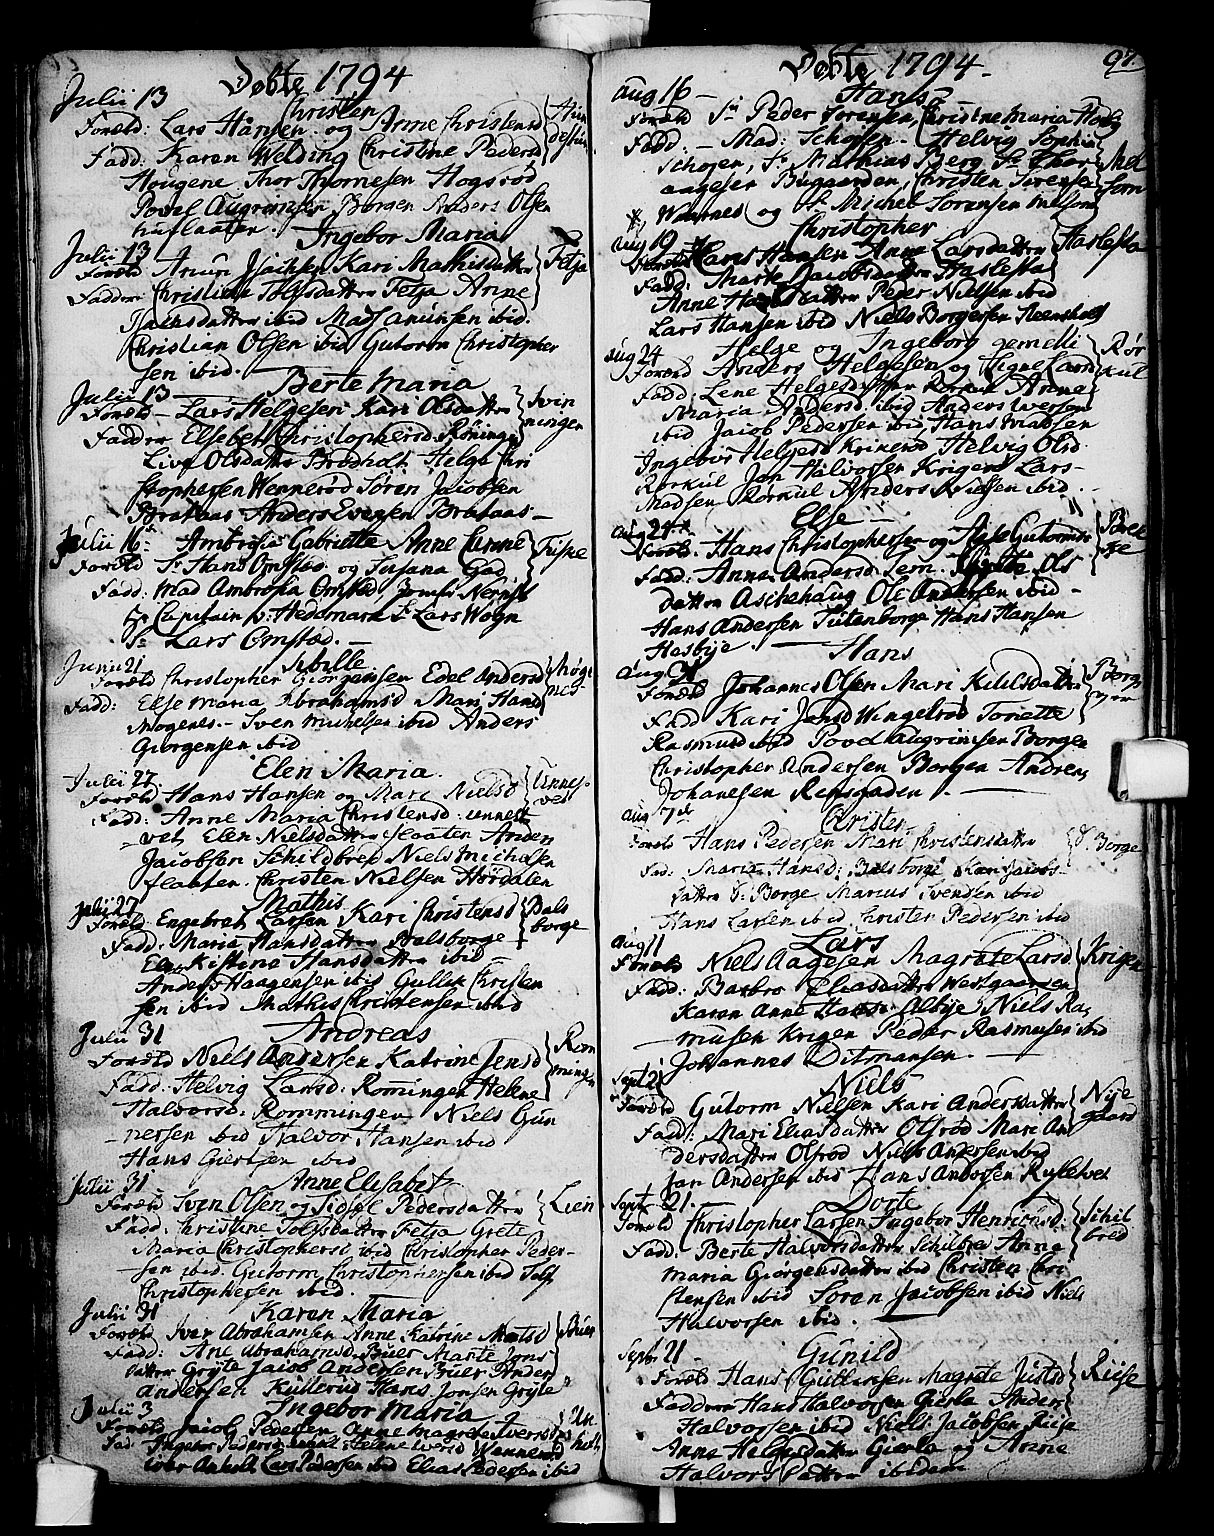 Døbte 1794
Julii 13
Christen
Foræld: Lars Hansen og Anne Christensd
Fadd: Karen Welding Christine Pedersd
Hougene Thor Thornesen Hogsrød
Povel Augrimsen Borgen Anders Olsen
Ingebor Maria
Julii 13
Foræld Amun Jsachsen Kari Mathisdatter } Fetja
Faddere Christian Tolfsdatter Fetja Anne
Jsachsdatter ibid Mads Amunsen ibid.
Christian Olsen ibid Gutorm Christopher
sen ibid.
Berte Maria
Julii 13
Foræld Lars Helgesen Kari Olsdatter } Svin
ningen
Faddere Elsebet Christophersd Røninge
Live Olsdatter Brødholt Helge Chri
stophersen Wennerød Søren Jacobsen
Brataas Anders Evensen Brataas
Julii 16 Ambrosia Gabriette Anne Cunne
Foræld Sr Hans Omsted og Susana Gad
Fadd: Mad Ambrosia Omsted Jomfr
Hr Capitain v: Hedemark Sr Lars Wogn
Sr Lars Omsted.
Sibille
Junii 21
Foræld Christopher Giorgensen Edel Andersd
Fadd: Else Maria Abrahamsd Mari Hansd
Mogenes. Sven Michelsen ibid Anders
Giorgensen ibid
Julii 27
Elen Maria.
Foræld Hans Hansen og Mari Nielsd } Unnes
vet
Fadd: Anne Maria Christensd unnest
vet, Elen Nielsdatter flaaten Anders
Jacobsen Schilbred Niels Michelsen
flaaten. Christen Nielsen Hørdalen
Julii 27
Mathis
Foræld Engebret Larsen Kari Christensd } Bals
borge
Fadd: Maria Hansdatter Balsborge
Elen Kistine Hansdatter ibid
Anders Haagensen ibid Gullik Christen
sen ibid Mathis Christensen ibid
Julii 31
Andreas
Foræld Niels Andersen Katrine Jensd } Rom
mingen
Fadd: Helvig Larsd: Romingen Helene
Halvorsd: Rommingen Niels Gun
nersen ibid Halvor Hansen ibid
Hans Giertsen ibid
Julii 31
Anne Elisabet
Foræld Sven Olsen og Sidsel Pedersdatter } Lien
Fadd: Christine Tolfsdatter Fetja Grete
Maria Christophersd ibid Christopher Peder
sen ibid Gutorm Christophersen ibid Tolf
Christophersen ibid.
Julii 31
Karen Maria
Foræld Iver Abrahamsen Anne Katrine Matsd } Buer
Fadd: Ane Abrahamsd Buer Marte Jons
datter Gryte Jacob Andersen Buer Anders
Andersen Kullerud Hans Jonsen Gryte
Julii 3
Ingebor Maria
Foræld Jacob Pedersen Anne Magrete Iversd
Fad: Ingebor Pedersd Helene Iversd Wennerød
Iver Anholt Lars Pedersen ibid Elias Pedersen ibid
Døbte 1794 97.
Aug 16
Hans
Foræld Sr Peder Sørensen, Christine Maria Holg
Fadd. Mad: Schøsen. Helvig Sophia
Schøsen, Sr Mathias Berg Sr Thor
aagesen Bugaarden, Christen Sørensen
Waarnes og Sr Michel Sørensen Melsom
Aug 19
Christopher
Foræld Hans Hansen Anne Larsdatter } Haslesta
Fadd: Marte Jacobsdatter Haslesta
Anne Hansdatter Peder Nielsen ibid
Lars Hansen ibid Niels Borgersen Reensholt
Aug 24
Helge og Ingeborg gemelli
Foræld Anders Helgesen og Signe Larsd } Rør
kul
Fadd: Lene Helgesdatter Rørkul Anne
Maria Andersd ibid Anders Iversen
ibid Jacob Pedersen ibid Hans Madsen
Ingebor Helgesd Krinend Helvig Olsd
Rørkul Jon Halvorsen Krigen Lars
Madsen Rørkul Anders Nielsen ibid.
Aug 24
Else
Foræld. Hans Christophersen og Aase Gutormsd
Fadd: Anne Andersd Lem. Grette Ols
datter Aschehaug Ole Andersen ibid
Hans Andersen Tutenborge Hans Hansen
Hasbye.
Hans
Foræld Johannes Olsen Mari Kitilsdatter } Borg
Fadd Kari Jensd Wingelrød Toriette
Rasmusd ibid Povel Augrimsen Borgen
Christopher Andersen Borgen Andreas
Johannesen Rensgaden.
Aug 7
Christen
Foræld Hans Pedersen Mari Christensdatter } S: Borge
Fad: Maria Hansd: Balsborge Kari Jacobs
datter S: Borge Marius Svendsen ibid
Hans Larsen ibid Christen Pedersen ibid
Aug 11
Lars
Foræld Niels Aagesen Magrete Larsd } Krigen
Fadd: Barbro Eliasdatter Westgaarden
Karen Anne Hansd Asbye Niels Ras
musen Krigen Peder Rasmusen ibid
Johannes Ditmansen.
Sept 21
Niels
Foræld Gutorm Nielsen Kari Andersdatter } Nye
gaard
Fadd: Mari Eliasdatter Olsrød Mari An
dersdatter Olsrød Niels Andersen ibid
Jan Andersen ibid Hans Andersen Rykelvet
Sept 21.
Dorte
Foræld Christopher Larsen Ingebor Henriksd: } Schil
bred
Fadd: Berte Halvorsdatter Schilbred Anne
Maria Giørgensdatter ibid Christen Chri
stensen ibid Søren Jacobsen ibid Niels
Halvorsen ibid.
Septbr 21
Gunild
Foræld Hans Guttersen Magrete Justsd } Riise
Faddere Hans Halvorsen Gierla Anders
Halvorsen ibid Niels Jacobsen Riise
Anne Helgesdatter Gierla og Anne
Halvorsdatter ibidem